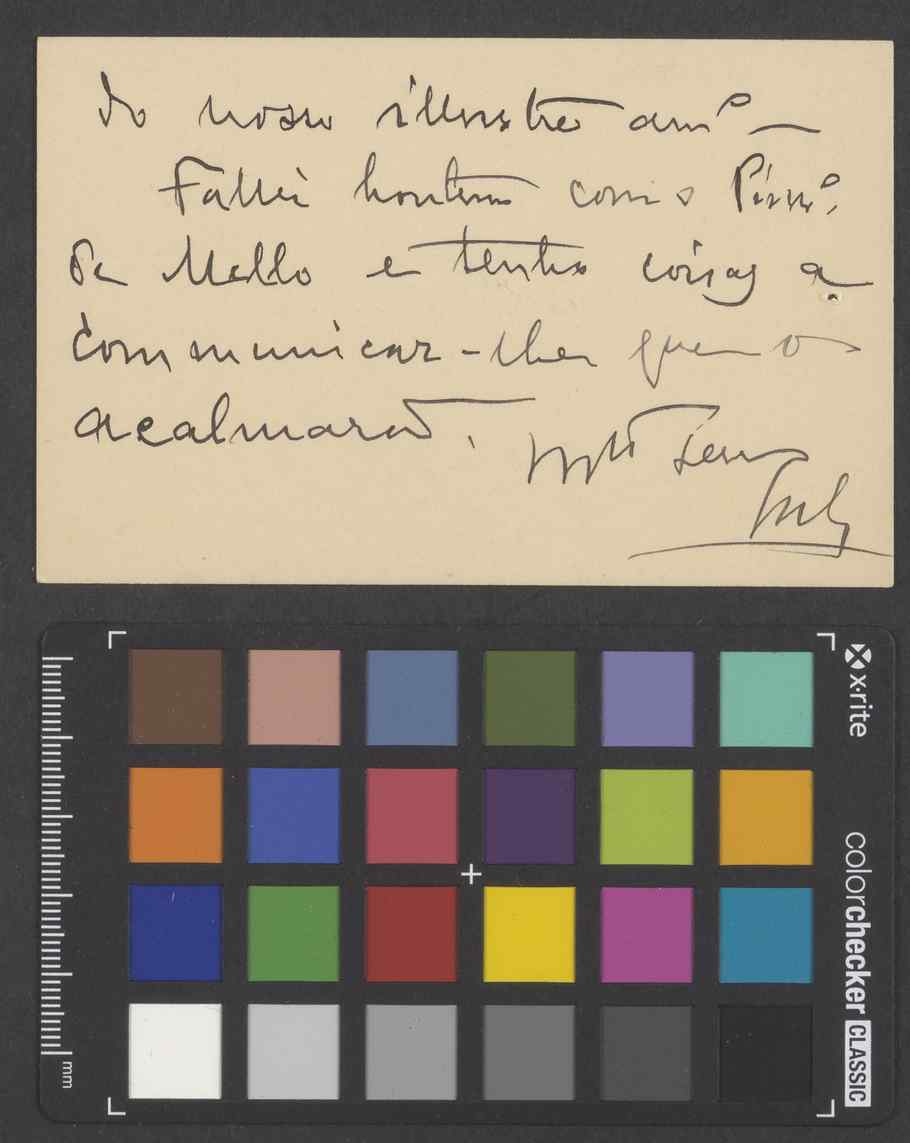 do nosso illustre amº
Fallei hontem com o
de Mello e tenho coisas a
communicar-lhe que o
acalmarão.
x·rite
colorchecker CLASSIC
mm